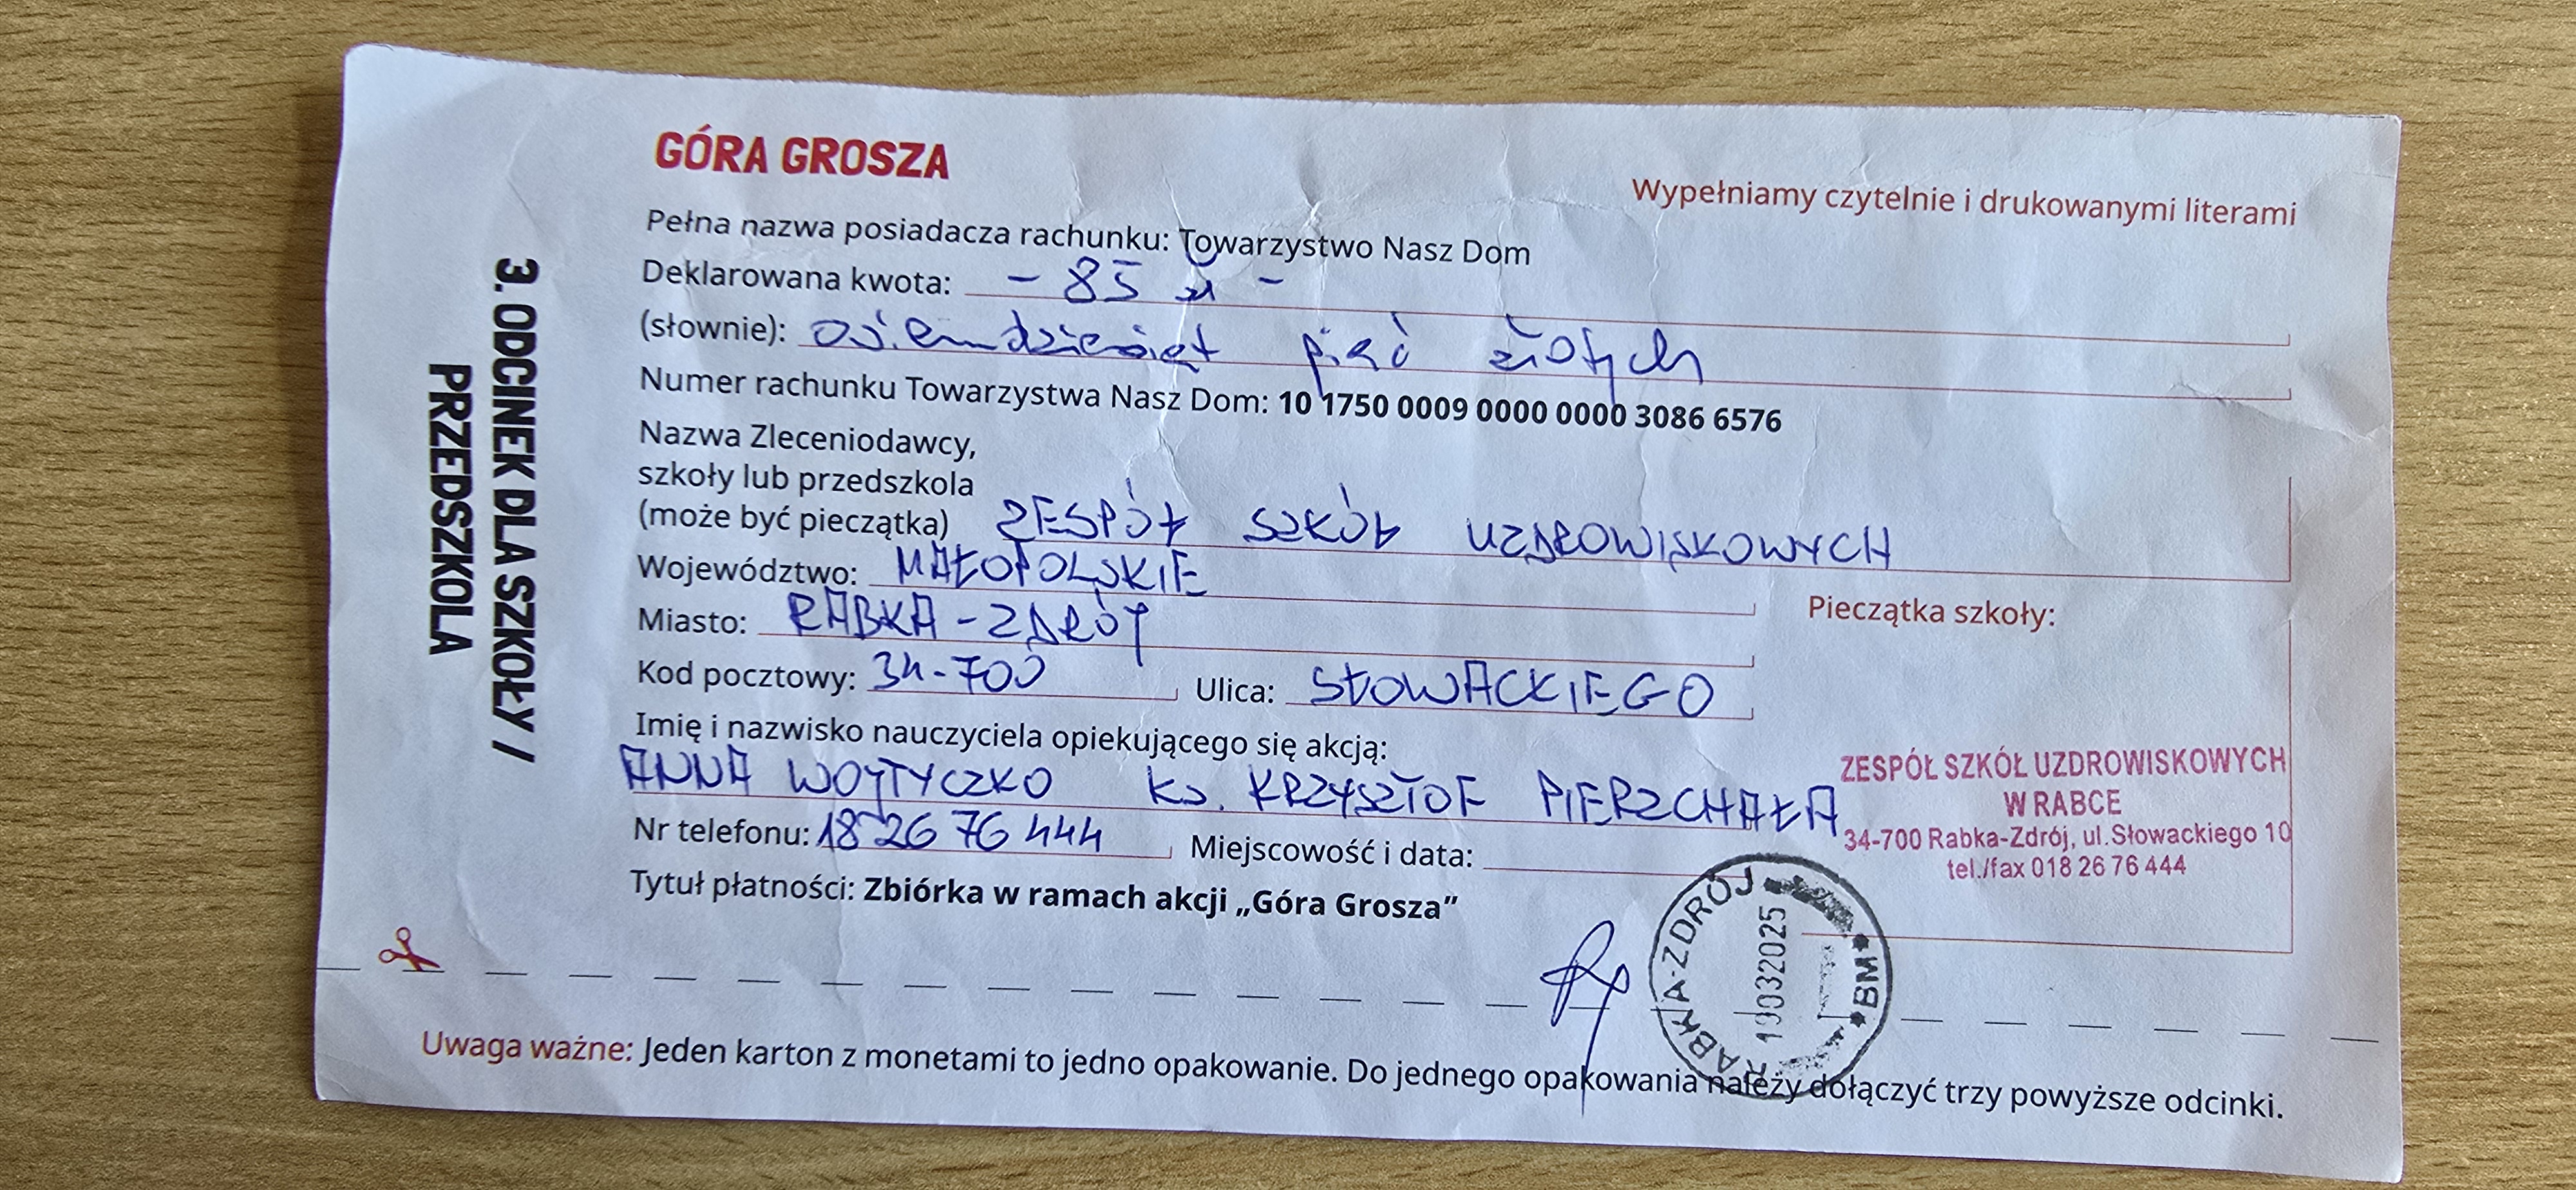 GÓRA GROSZA
Wypełniamy czytelnie i drukowanymi literami
Pełna nazwa posiadacza rachunku: Towarzystwo Nasz Dom
Deklarowana kwota: - 85 zł -
(słownie): osiemdziesiąt pięć złotych
Numer rachunku Towarzystwa Nasz Dom: 10 1750 0009 0000 0000 3086 6576
Nazwa Zleceniodawcy,
szkoły lub przedszkola
(może być pieczątka) ZESPÓŁ SZKÓŁ UZDROWISKOWYCH
Województwo: MAŁOPOLSKIE
Miasto: RABKA-ZDRÓJ
Pieczątka szkoły:
Kod pocztowy: 34-700 Ulica: SŁOWACKIEGO
Imię i nazwisko nauczyciela opiekującego się akcją:
ANNA WOJTYCZKO ks. KRZYSZTOF PIERZCHAŁA
ZESPÓŁ SZKÓŁ UZDROWISKOWYCH
W RABCE
34-700 Rabka-Zdrój, ul.Słowackiego 10
tel./fax 018 26 76 444
Nr telefonu: 18 26 76 444 Miejscowość i data:
Tytuł płatności: Zbiórka w ramach akcji „Góra Grosza”
RABKA-ZDRÓJ
19032025
*BM*
Uwaga ważne: Jeden karton z monetami to jedno opakowanie. Do jednego opakowania należy dołączyć trzy powyższe odcinki.
3. ODCINEK DLA SZKOŁY /
PRZEDSZKOLA